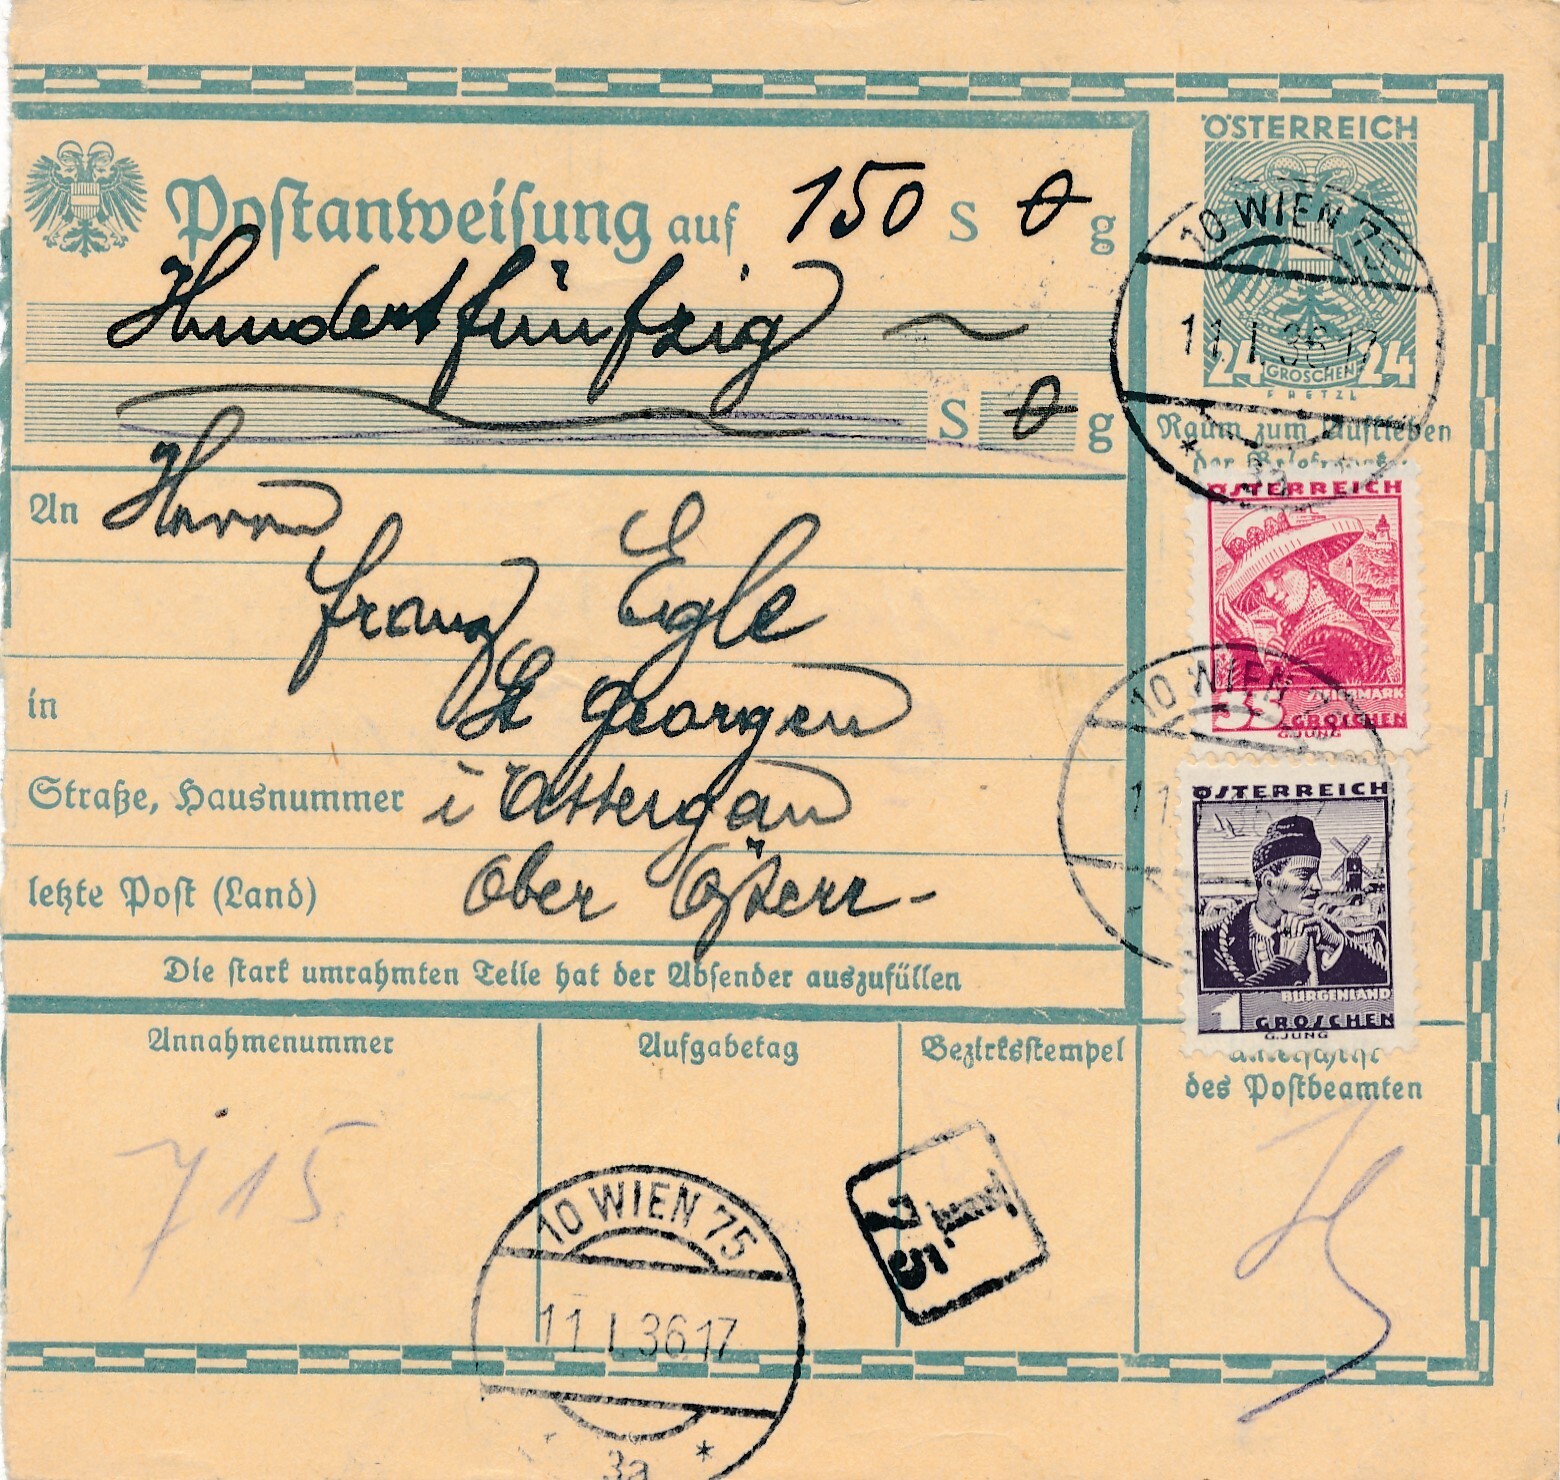 Postanweisung auf 150 S 0 g
Hundertfünfzig ~
S 0 g
An Herrn
Franz Egle
in St Georgen
Straße, Hausnummer i Attergau
letzte Post (Land) Ober Österr-
Die stark umrahmten Teile hat der Absender auszufüllen
ÖSTERREICH
24 GROSCHEN 24
FRETZL
10 WIEN 75
11.I.36 17
* 3a
Raum zum Aufkleben
der
ÖSTERREICH
STEIERMARK
35 GROSCHEN
G.JUNG
10 WIEN
ÖSTERREICH
BURGENLAND
1 GROSCHEN
G.JUNG
Annahmenummer
715
Aufgabetag
10 WIEN 75
11.I.36 17
* 3a *
Bezirksstempel
I.
75
Unterschrift
des Postbeamten